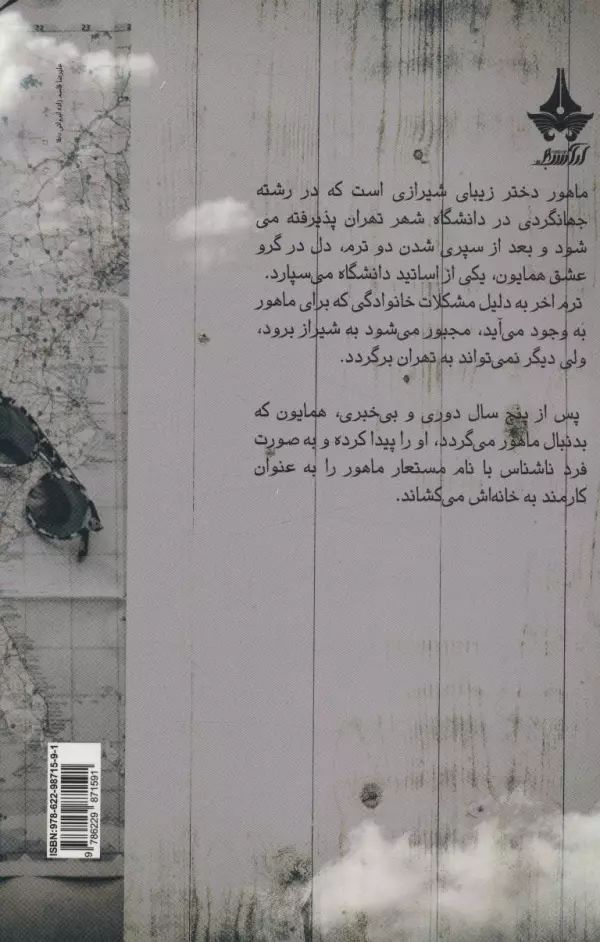 ماهور دختر زیبای شیرازی است که در رشته
جهانگردی در دانشگاه شهر تهران پذیرفته می
شود و بعد از سپری شدن دو ترم، دل در گرو
عشق همایون، یکی از اساتید دانشگاه می‌سپارد.
ترم اخر به دلیل مشکلات خانوادگی که برای ماهور
به وجود می‌آید، مجبور می‌شود به شیراز برود،
ولی دیگر نمی‌تواند به تهران برگردد.
پس از پنج سال دوری و بی‌خبری، همایون که
بدنبال ماهور می‌گردد، او را پیدا کرده و به صورت
فرد ناشناس با نام مستعار ماهور را به عنوان
کارمند به خانه‌اش می‌کشاند.
ISBN:978-622-98715-9-1
9 786229 871591